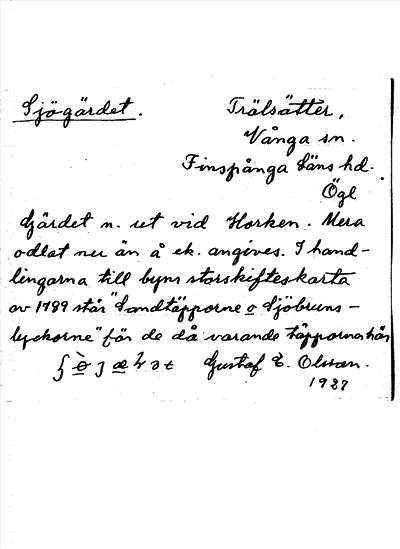 Sjögärdet. Trälsätter,
Vånga sn.
Finspånga läns hd.
Ögl
Gärdet n. ut vid Horken. Mera
odlat nu än å ek. angives. I hand-
lingarna till byns storskifteskarta
av 1789 står "Sandtäpporne o Sjöbruns-
lyckorne" för de då varande täpporna här
Gustaf E. Olsson.
1927